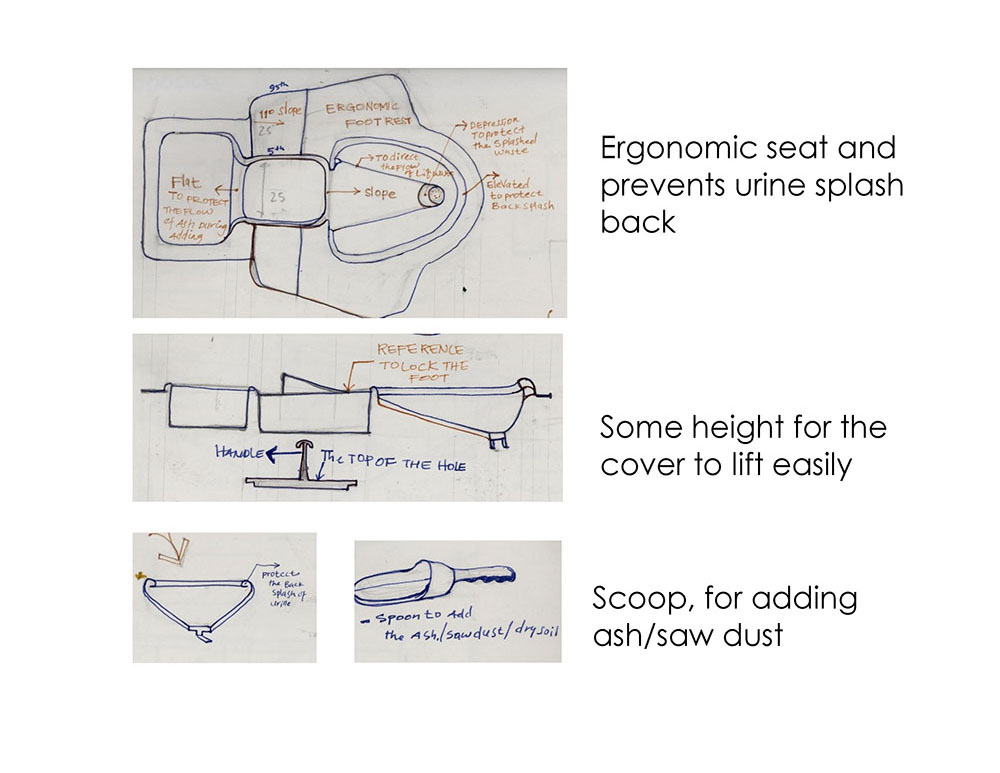 95th
11° slope
25
5th
ERGONOMIC
FOOT REST
DEPRESSION
TO protect
the splashed
waste
TO direct
the flow
of Liq
Elevated
to protect
Back splash
slope
25
Flat
TO PROTECT
THE FLOW
of Ash During
Adding
Ergonomic seat and
prevents urine splash
back
REFERENCE
TO LOCK THE
FOOT
HANDLE
The TOP OF THE HOLE
Some height for the
cover to lift easily
protect
the Back
splash of
urine
- SPOON TO Add
the Ash/sawdust/dry soil
Scoop, for adding
ash/saw dust